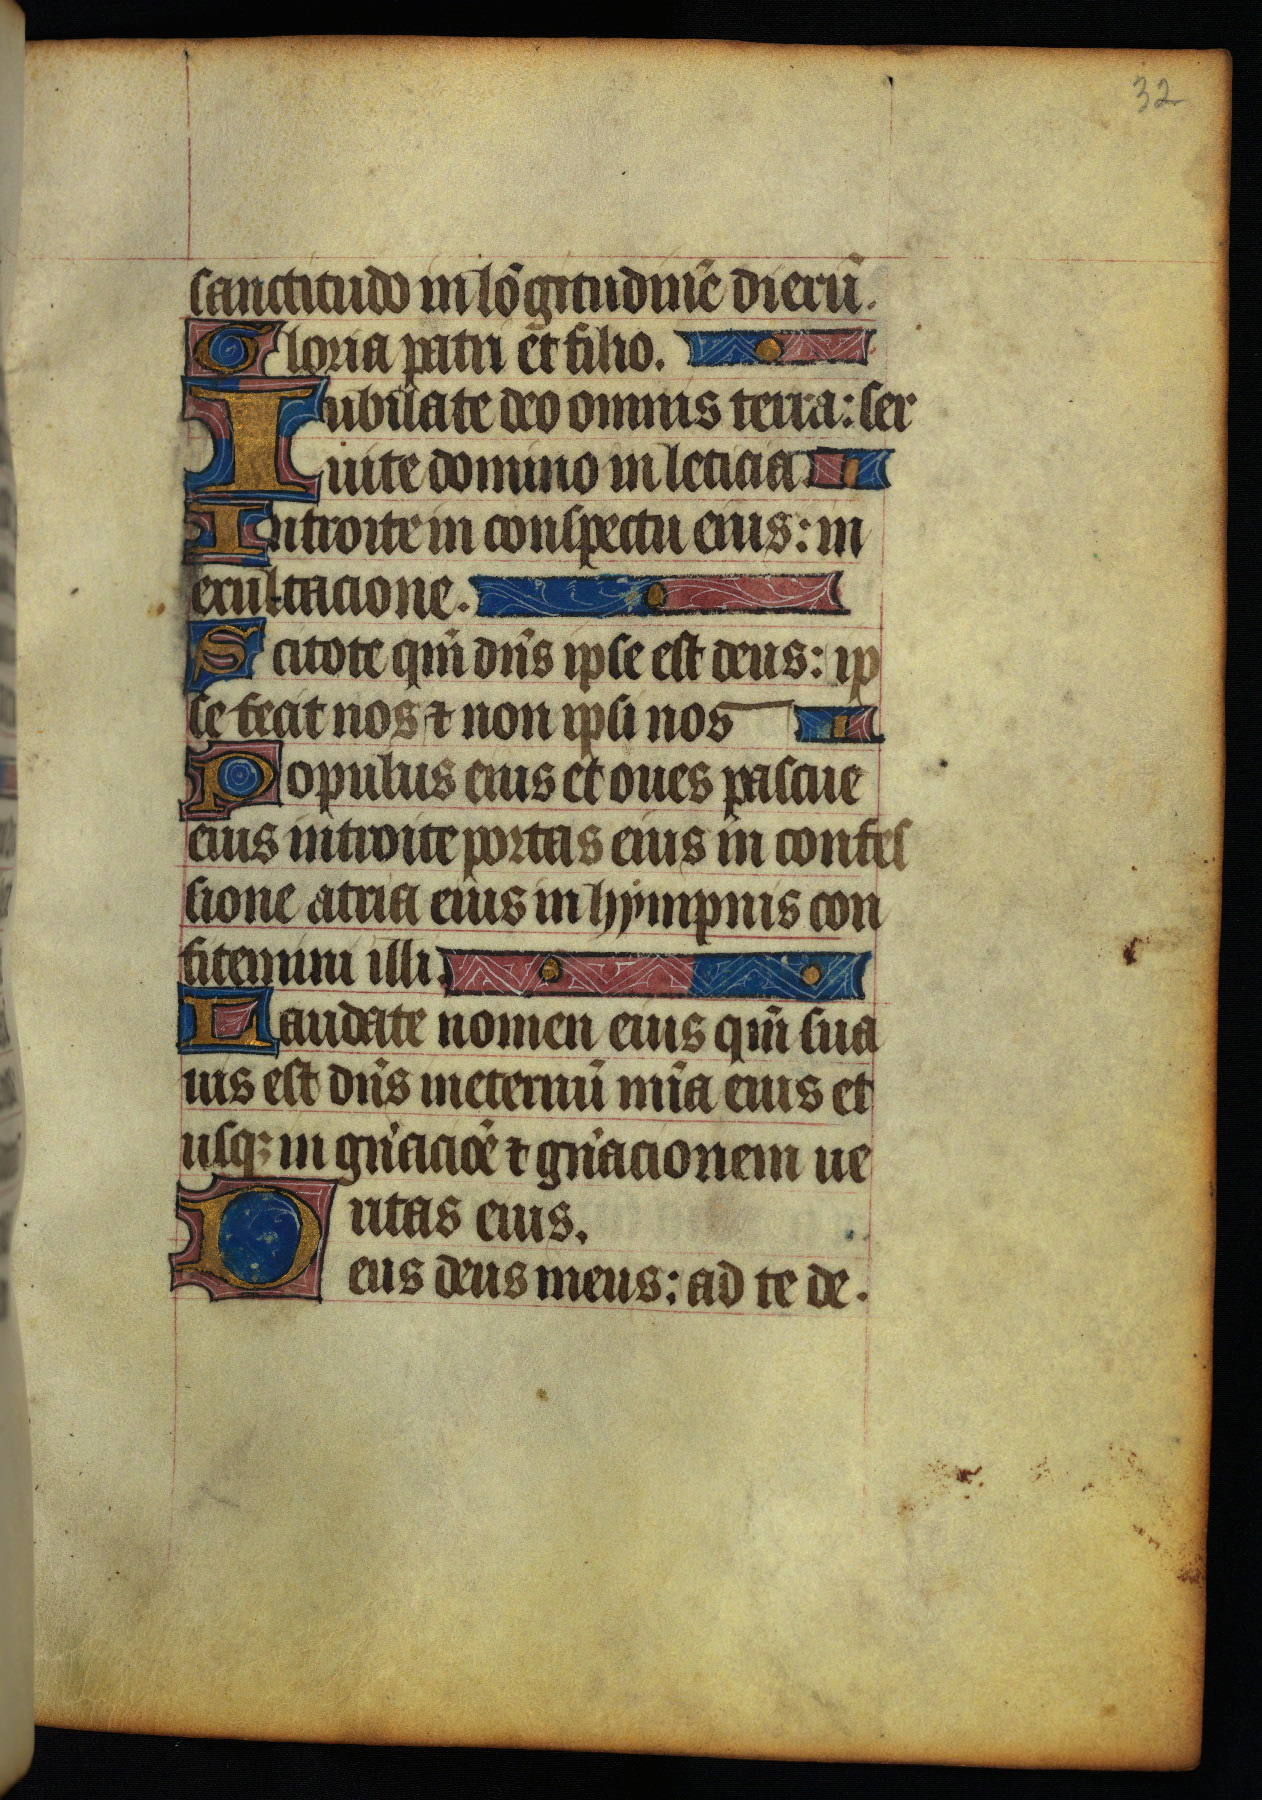 32
sanctitudo in lo᷑gitudinē dierū.
Gloria patri et filio.
Iubilate deo omnis terra: ser
uite domino in leticia
Introite in conspectu eius: in
exultacione.
Scitote qm̄ dn̄s ipse est deus: ip
se fecit nos ⁊ non ipsi nos
Populus eius et oues pascue
eius introite portas eius in confes
sione atria eius in hympnis con
fitemini illi.
Laudate nomen eius qm̄ sua
uis est dn̄s ineternū mīa eius et
usq; in gn̄acioē ⁊ gn̄acionem ue
ritas eius.
Deus deus meus: ad te de.